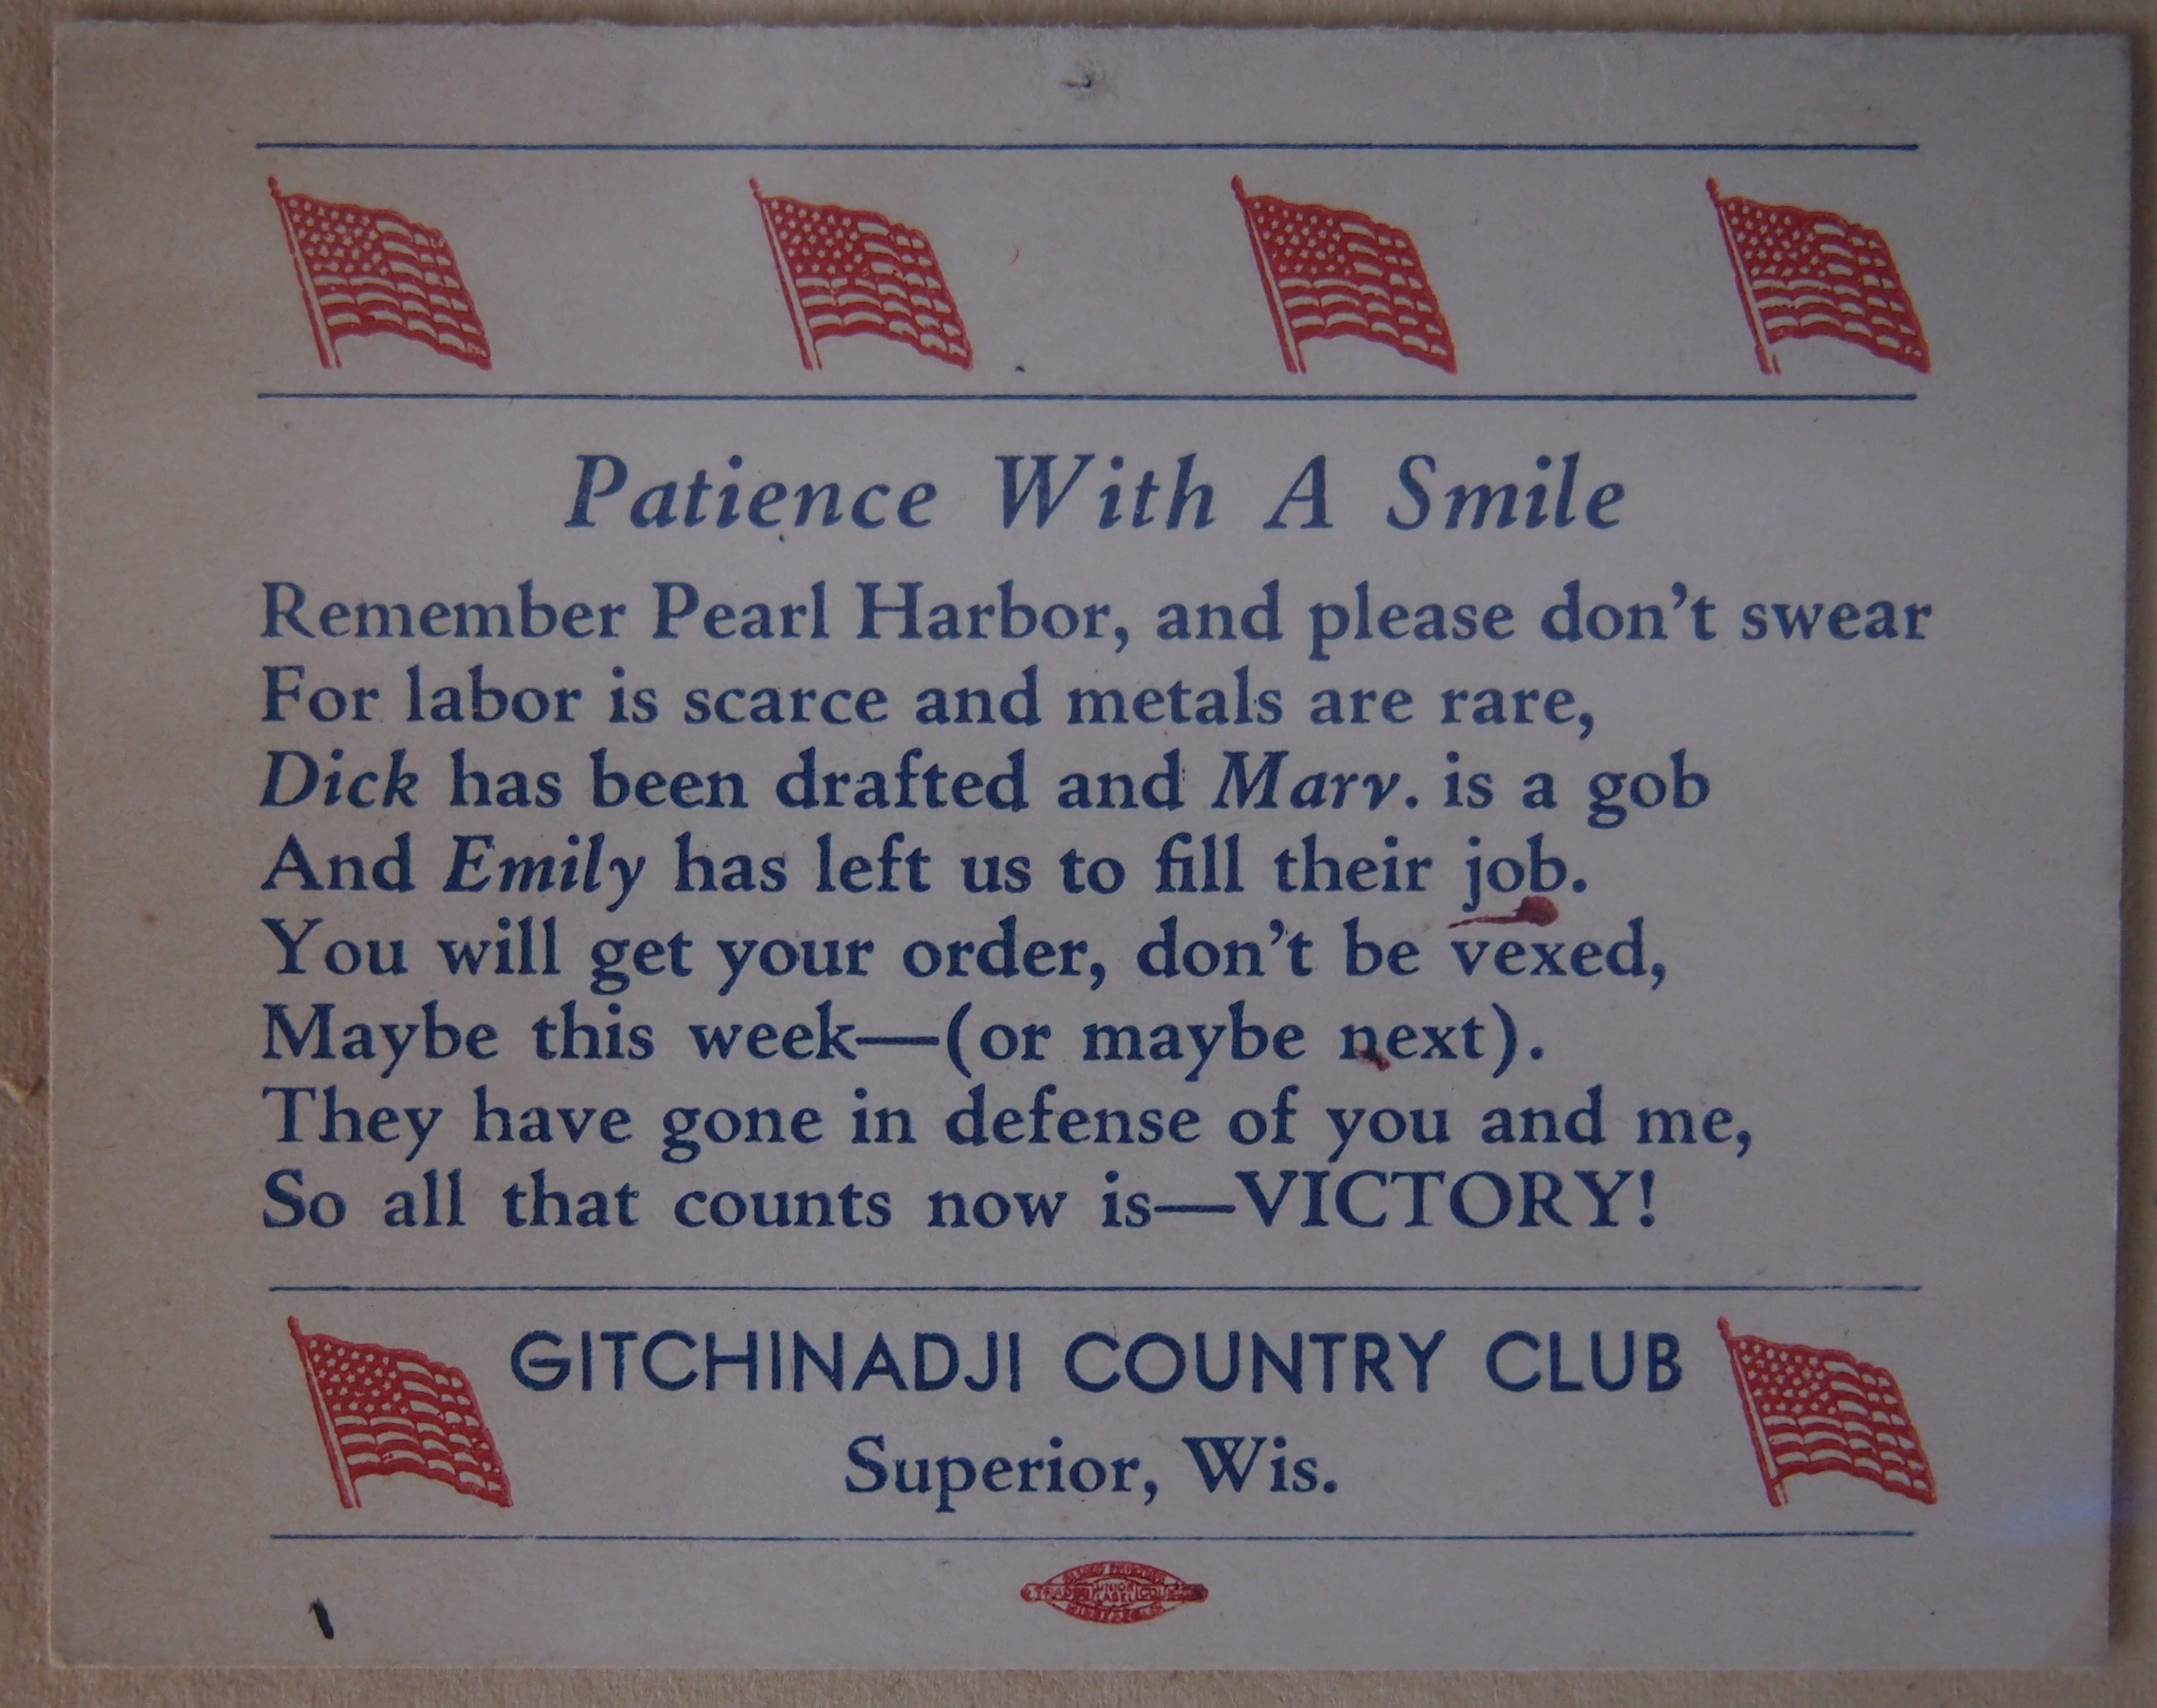 Patience With A Smile
Remember Pearl Harbor, and please don't swear
For labor is scarce and metals are rare,
Dick has been drafted and Marv. is a gob
And Emily has left us to fill their job.
You will get your order, don't be vexed,
Maybe this week—(or maybe next).
They have gone in defense of you and me,
So all that counts now is—VICTORY!
GITCHINADJI COUNTRY CLUB
Superior, Wis.
UNION
LABEL